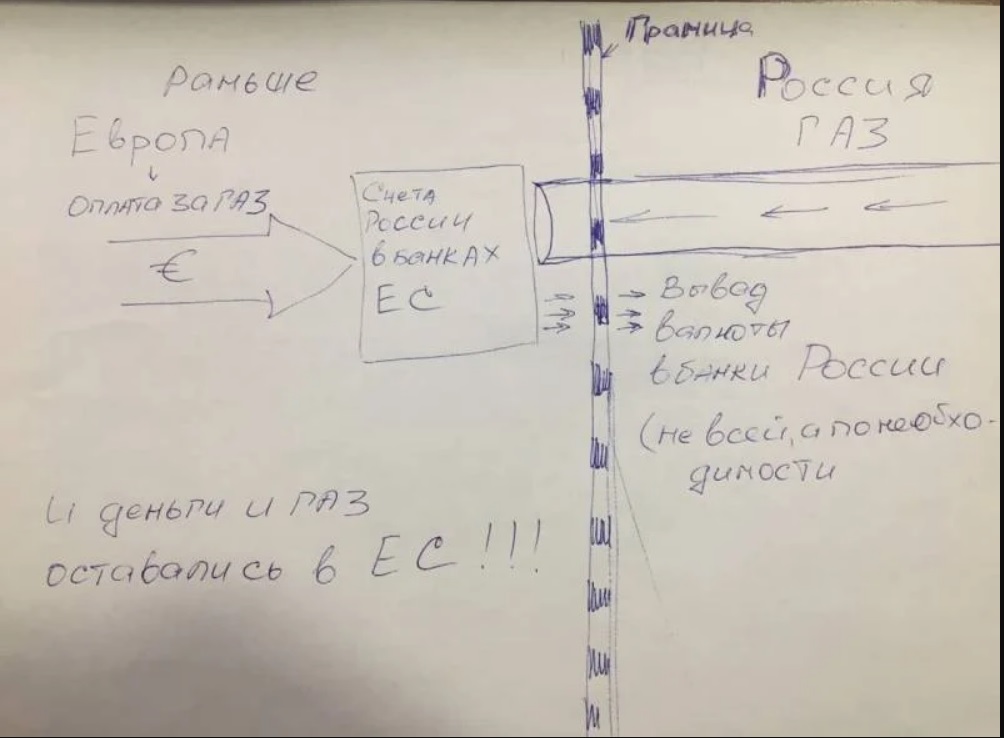 Раньше
Европа
оплата за ГАЗ
€
Счета
России
в банках
ЕС
Граница
Россия
ГАЗ
Вывад
валюты
в банки России
(не всей, а по необхо-
димости
И деньги и ГАЗ
оставались в ЕС!!!